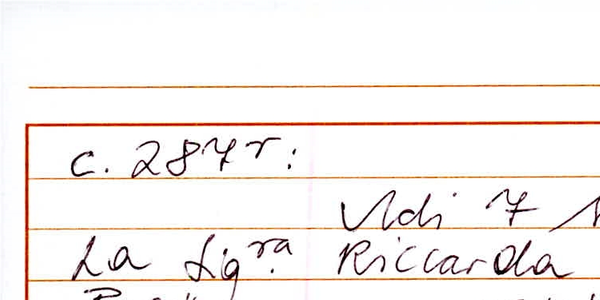 c. 287r:
Adi 7
La Sig.ra Riccarda